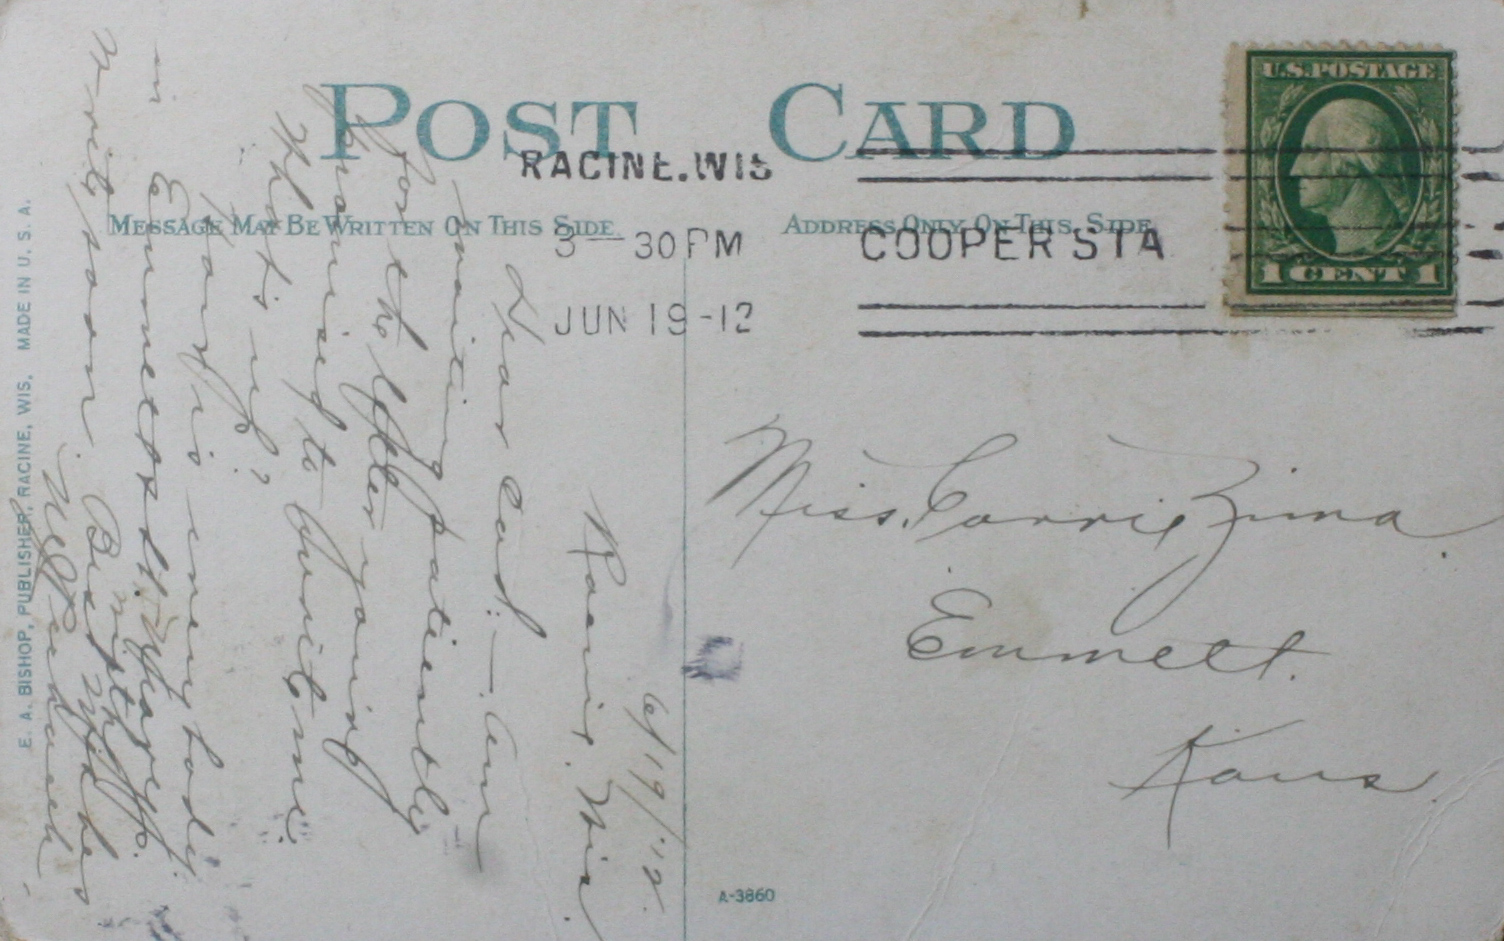 POST CARD
RACINE, WIS
MESSAGE MAY BE WRITTEN ON THIS SIDE
ADDRESS ONLY ON THIS SIDE
3-30 PM
COOPER STA
JUN 19-12
U.S. POSTAGE
1 CENT 1
Miss. Carrie Zima
Emmett.
Kans.
A-3860
E. A. BISHOP, PUBLISHER, RACINE, WIS. MADE IN U. S. A.
6/19/'12.
Racine. Wis.
Dear Cad:— Am
waiting patiently
for the letter you
promised to write me.
What's up?
How is everybody
in Emmett
Write soon. Best Wishes